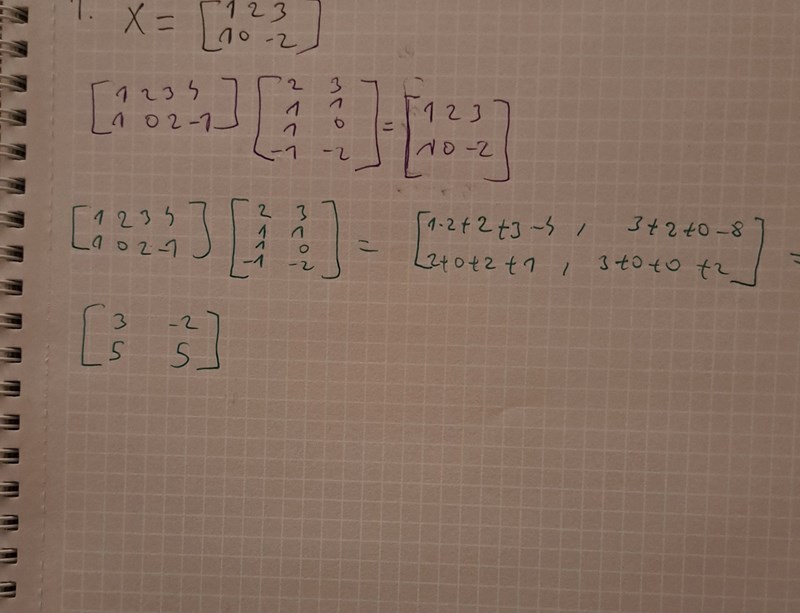 1. X = [1 2 3
1 0 -2]
[1 2 3 4
1 0 2 -1] [2 3
1 1
1 0
-1 -2] = [1 2 3
1 0 -2]
[1 2 3 4
1 0 2 -1] [2 3
1 1
1 0
-1 -2] = [1·2+2+3-4 , 3+2+0-8
2+0+2+1 , 3+0+0+2] =
[3 -2
5 5]